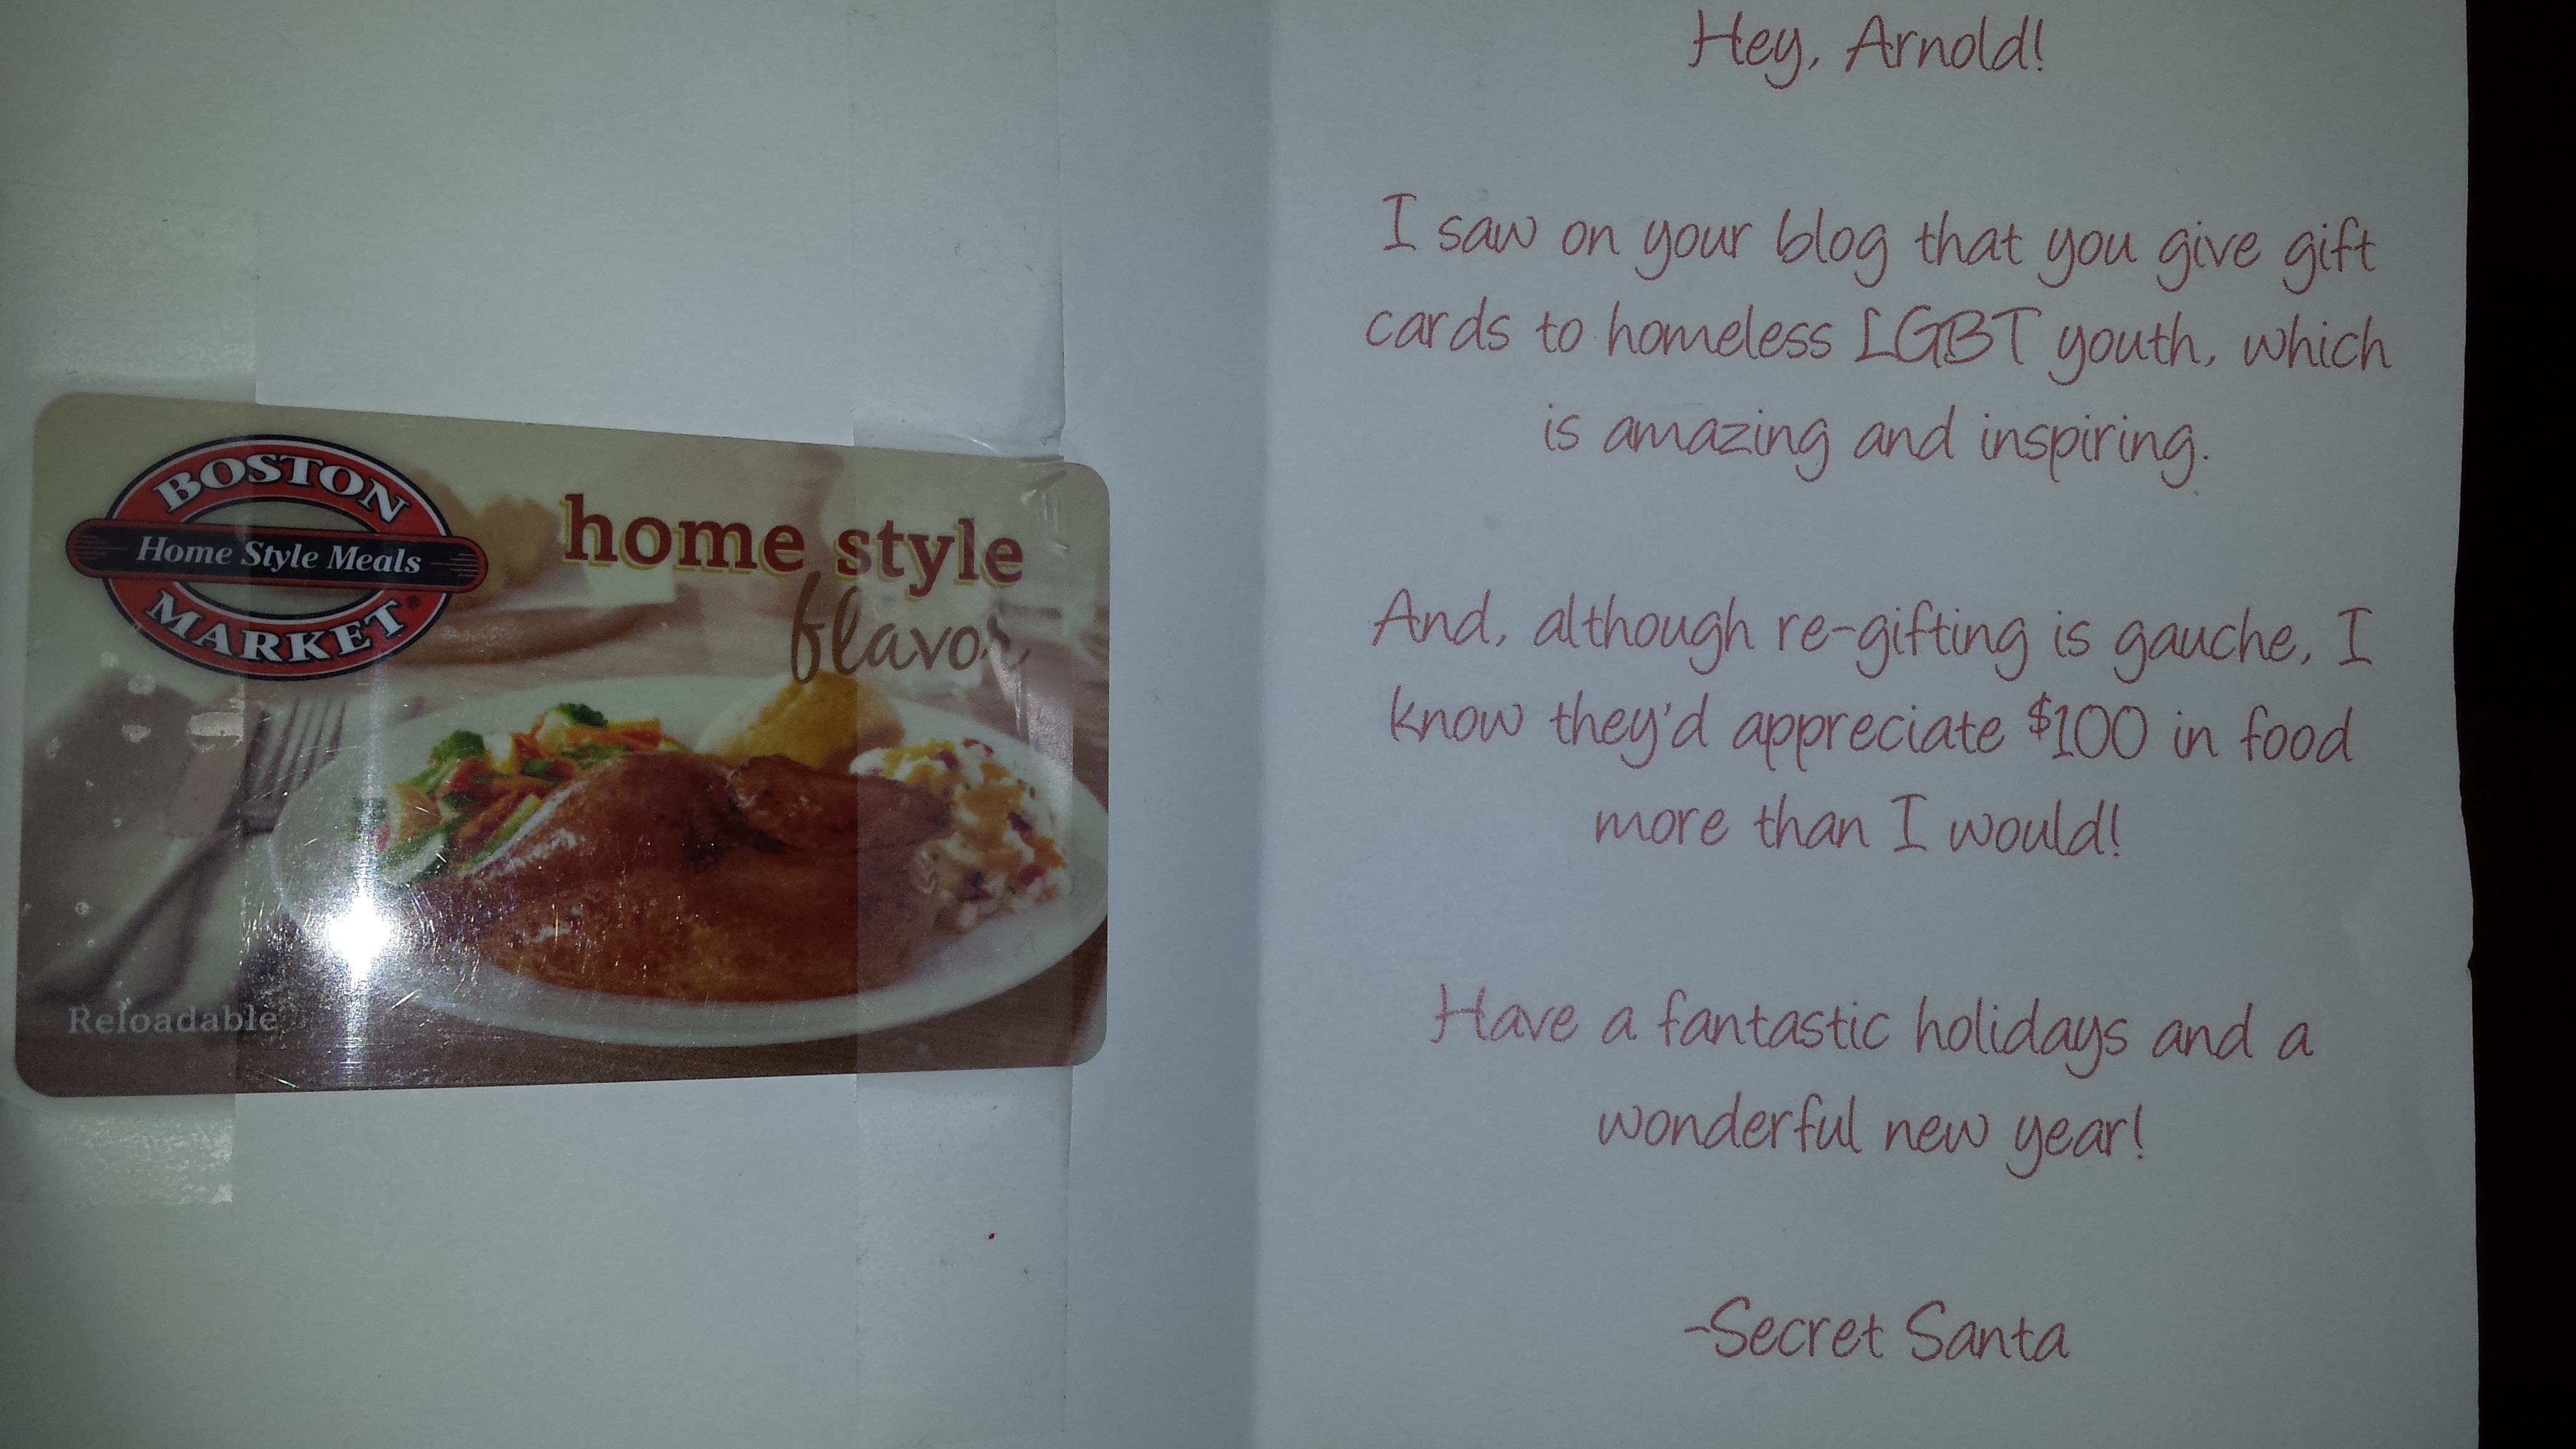 BOSTON
Home Style Meals
MARKET®
home style
flavor
Reloadable
Hey, Arnold!
I saw on your blog that you give gift
cards to homeless LGBT youth, which
is amazing and inspiring.
And, although re-gifting is gauche, I
know they'd appreciate $100 in food
more than I would!
Have a fantastic holidays and a
wonderful new year!
-Secret Santa